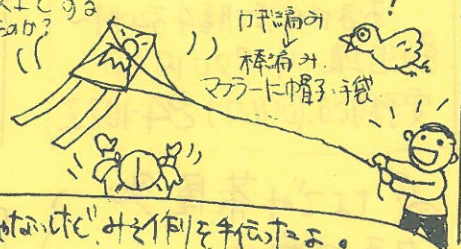 カギ編み
↓
棒編み.
マフラーに帽子、手袋
?
のか?
ゃないけど、みそ作りを手伝ったよ。